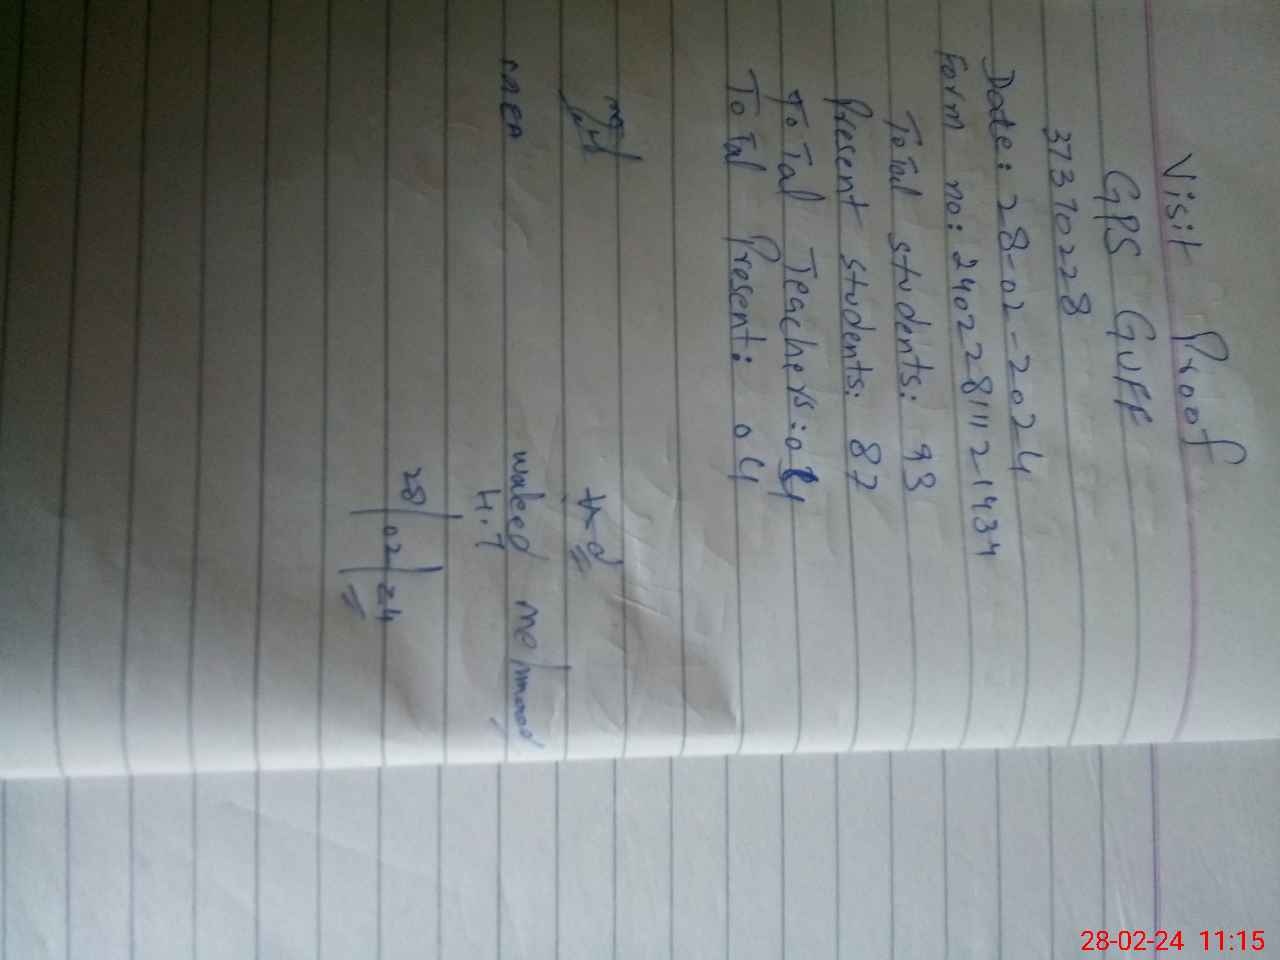 Visit Proof
GPS GUFF
37370228
Date: 28-02-2024
Form no: 24022811121434
Total students: 93
Present students: 87
Total Teachers: 04
Total Present: 04
MEA
waleed mehmood
H.T
28/02/24
28-02-24 11:15